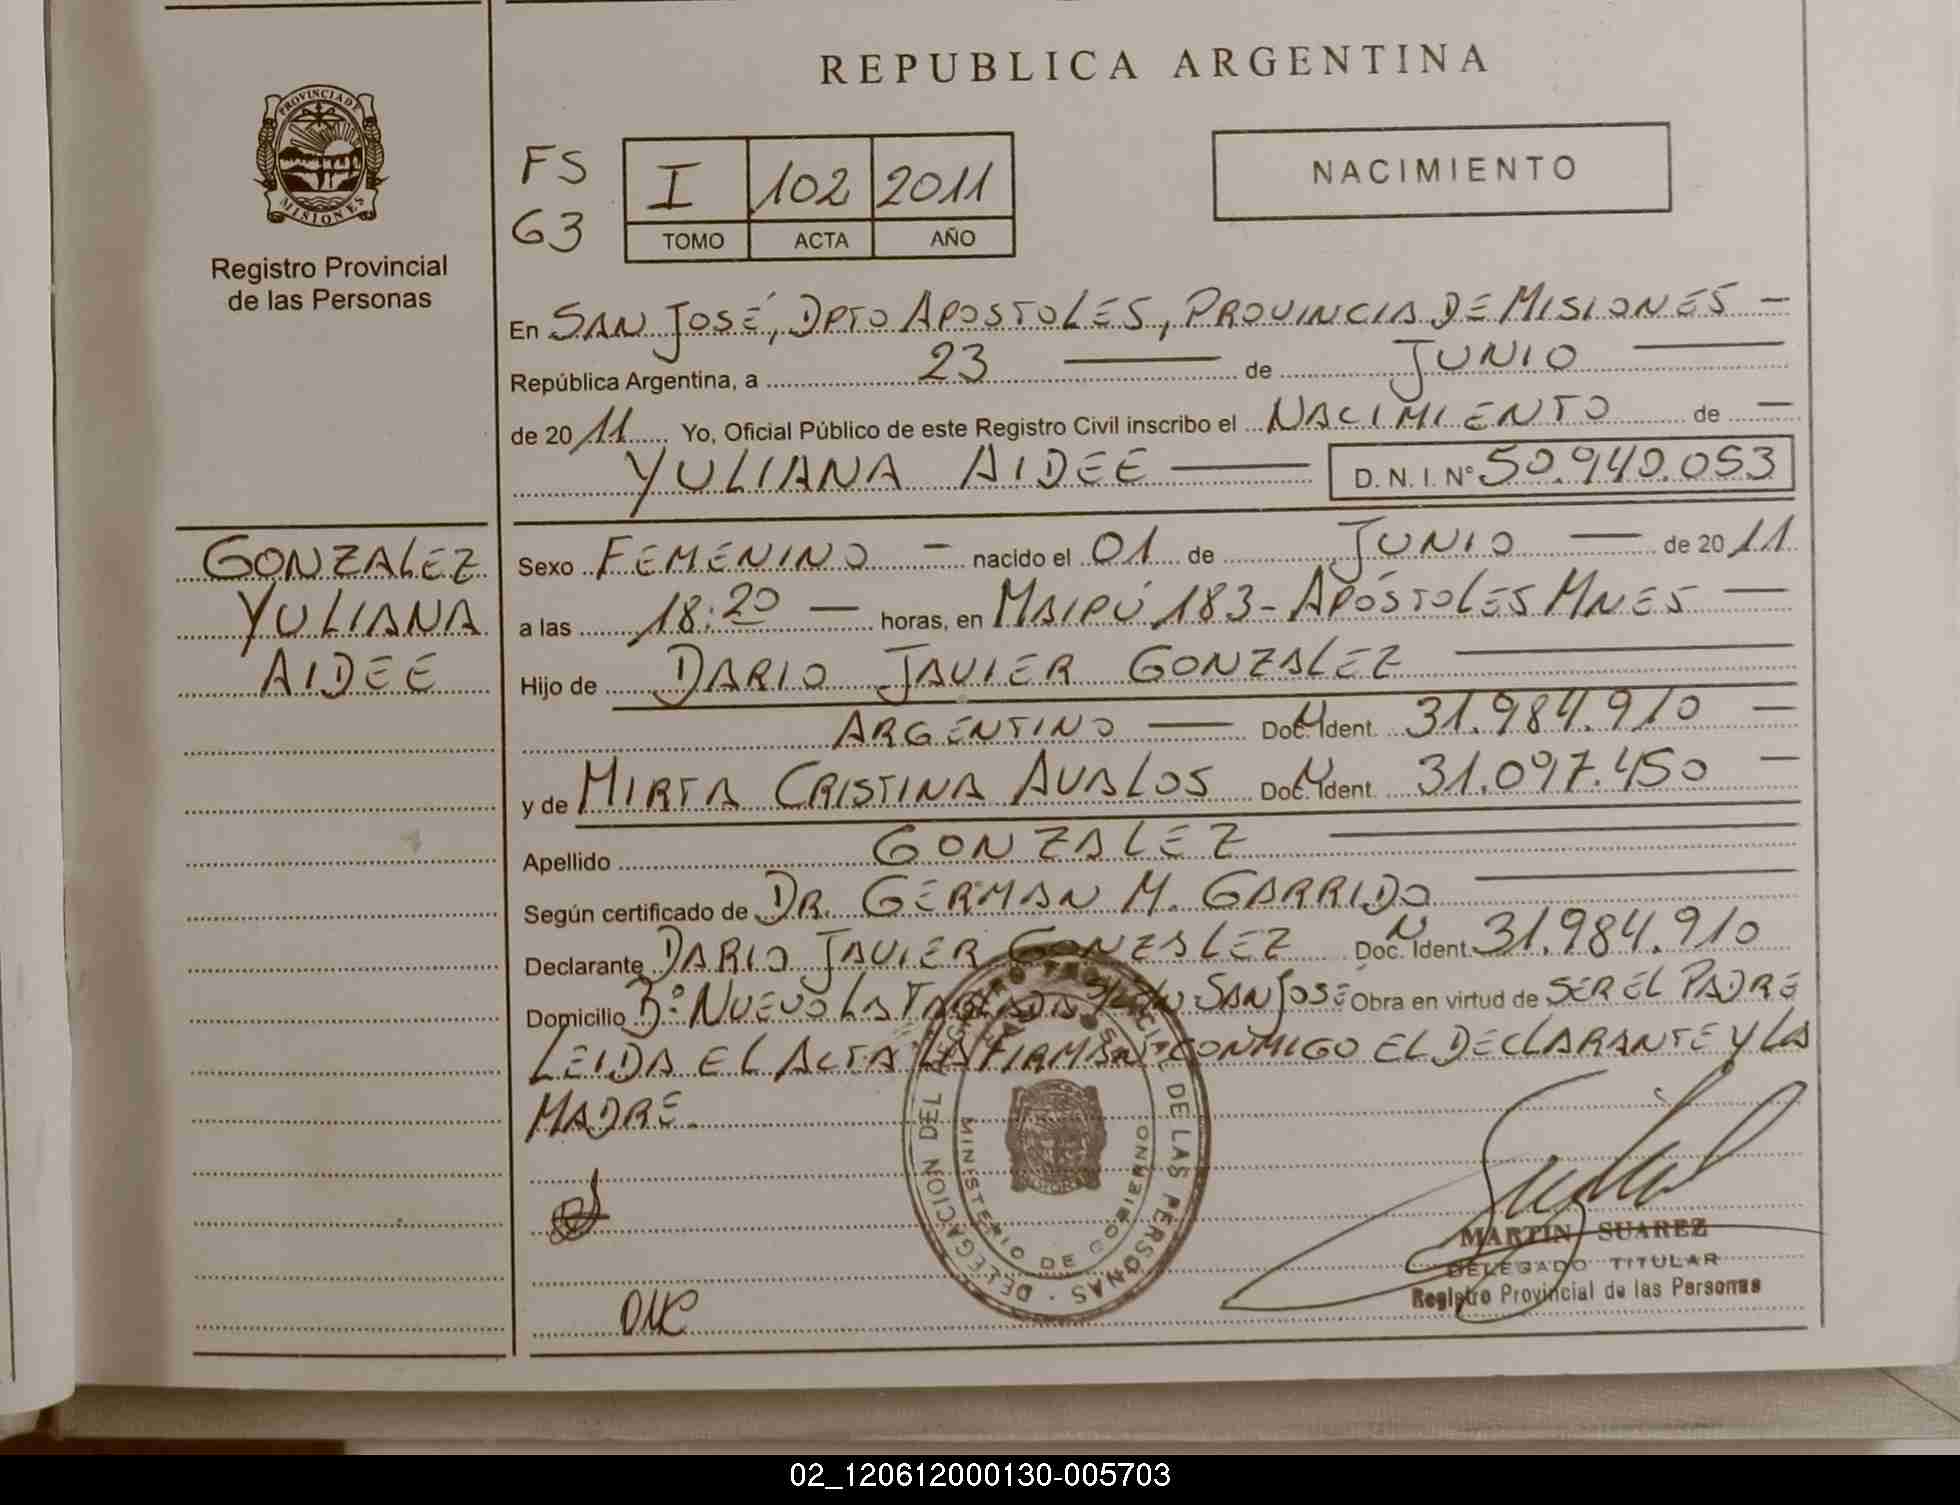 REPUBLICA ARGENTINA
PROVINCIA DE
MISIONES
Registro Provincial
de las Personas
FS
63
I 102 2011
TOMO ACTA AÑO
NACIMIENTO
En SAN JOSÉ, DPTO APOSTOLES, PROVINCIA DE MISIONES —
República Argentina, a 23 — de JUNIO —
de 2011 Yo, Oficial Público de este Registro Civil inscribo el NACIMIENTO de —
YULIANA AIDEE — D. N. I. Nº 50.940.053
GONZALEZ
YULIANA
AIDEE
Sexo FEMENINO – nacido el 01 de JUNIO — de 2011
a las 18:20 — horas, en MAIPÚ 183 - APÓSTOLES MNES —
Hijo de DARIO JAVIER GONZALEZ —
ARGENTINO — Doc. Ident. 31.984.910 —
y de MIRTA CRISTINA AVALOS Doc. Ident. 31.097.450 —
Apellido GONZALEZ —
Según certificado de DR. GERMAN M. GARRIDO —
Declarante DARIO JAVIER GONZALEZ Doc. Ident. 31.984.910
Domicilio Bº NUEVO LA TABLADA SAN JOSÉ Obra en virtud de SER EL PADRE
LEIDA EL ACTA LA FIRMAN CONMIGO EL DECLARANTE Y LA
MADRE.
DELEGACION DEL REGISTRO PROVINCIAL DE LAS PERSONAS
MINISTERIO DE GOBIERNO
MARTIN SUAREZ
DELEGADO TITULAR
Registro Provincial de las Personas
02_120612000130-005703